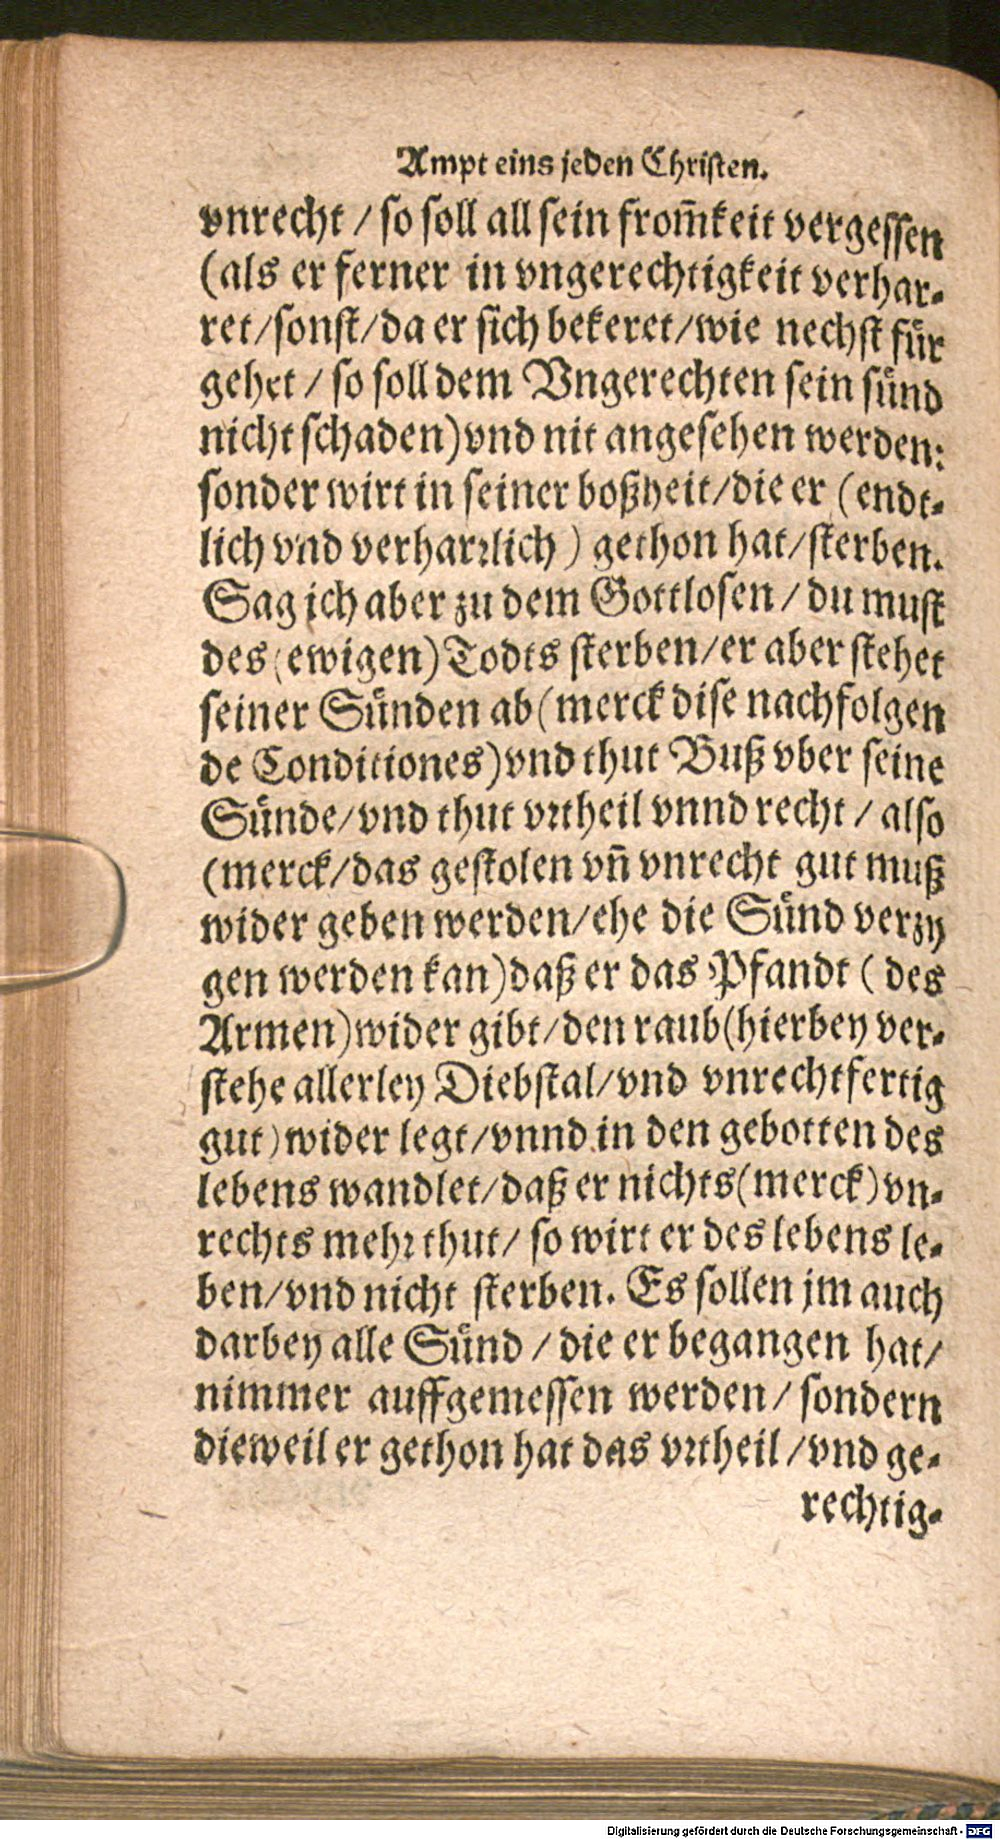 Ampt eins jeden Christen.
vnrecht / so soll all sein from̃keit vergessen
(als er ferner in vngerechtigkeit verhar-
ret/sonst/da er sich bekeret/wie nechst für
gehet / so soll dem Vngerechten sein sünd
nicht schaden) vnd nit angesehen werden:
sonder wirt in seiner boßheit/die er (endt-
lich vnd verharrlich) gethon hat/sterben.
Sag ich aber zu dem Gottlosen / du must
des (ewigen) Todts sterben/er aber stehet
seiner Sünden ab (merck dise nachfolgen
de Conditiones) vnd thut Buß vber seine
Sünde/vnd thut vrtheil vnnd recht / also
(merck/das gestolen vñ vnrecht gut muß
wider geben werden/ehe die Sünd verzy
gen werden kan) daß er das Pfandt (des
Armen) wider gibt/den raub (hierbey ver-
stehe allerley Diebstal/vnd vnrechtfertig
gut) wider legt/vnnd in den gebotten des
lebens wandlet/daß er nichts (merck) vn-
rechts mehr thut/ so wirt er des lebens le-
ben/vnd nicht sterben. Es sollen jm auch
darbey alle Sünd / die er begangen hat/
nimmer auffgemessen werden/ sondern
dieweil er gethon hat das vrtheil /vnd ge-
rechtig-
Digitalisierung gefördert durch die Deutsche Forschungsgemeinschaft - DFG